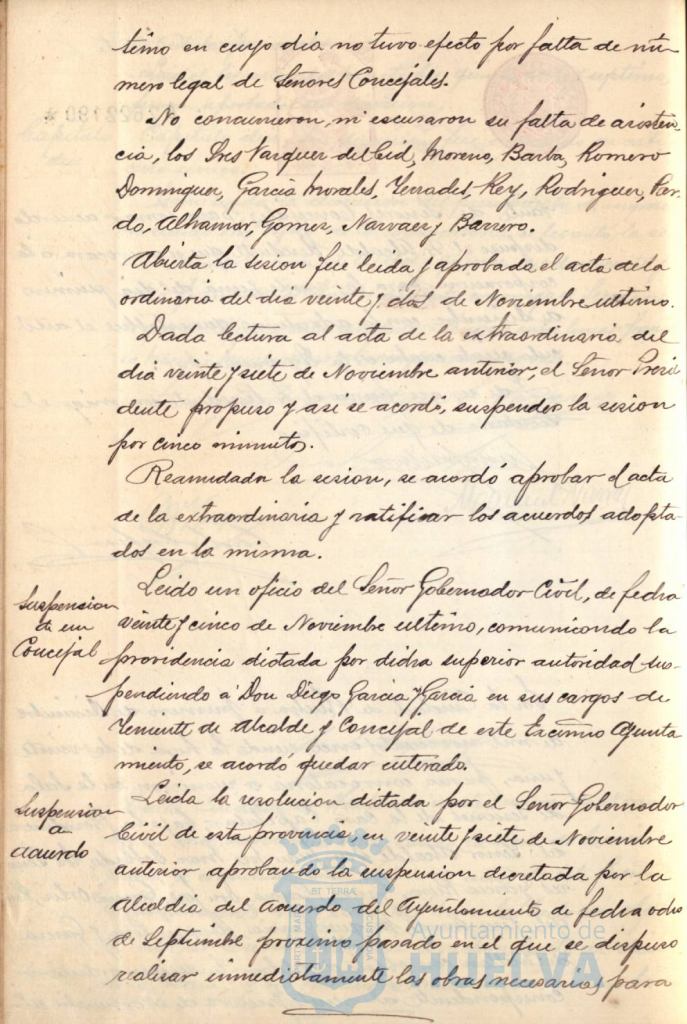 timo en cuyo dia no tuvo efecto por falta de nú-
mero legal de Señores Concejales.
No concurrieron, ni escusaron su falta de asisten-
cia, los Sres Vazquez del Cid, Moreno, Barba, Romero
Dominguez, Garcia Morales, Terrades, Rey, Rodriguez, Per-
do, Alhamar, Gomez, Narvaez y Barrero.
Abierta la sesion fué leida y aprobada el acta de la
ordinaria del dia veinte y dos de Noviembre ultimo.
Dada lectura al acta de la extraordinaria del
dia veinte y siete de Noviembre anterior, el Señor Presi
dente propuso y asi se acordó, suspender la sesion
por cinco minutos.
Reanudada la sesion, se acordó aprobar el acta
de la extraordinaria y ratificar los acuerdos adopta-
dos en la misma.
Suspension
de un
Concejal
Leido un oficio del Señor Gobernador Civil, de fecha
veinte y cinco de Noviembre ultimo, comunicando la
providencia dictada por dicha superior autoridad sus-
pendiendo á Don Diego Garcia y Garcia en sus cargos de
Teniente de Alcalde y Concejal de este Excmo Ayunta
miento, se acordó quedar enterado.
Suspension
a
acuerdo
Leida la resolucion dictada por el Señor Gobernador
Civil de esta provincia, en veinte y siete de Noviembre
anterior aprobando la suspension decretada por la
Alcaldia del acuerdo del Ayuntamiento de fecha ocho
de Septiembre proximo pasado en el que se dispuso
realizar inmediatamente las obras necesarias para
Ayuntamiento de
HUELVA